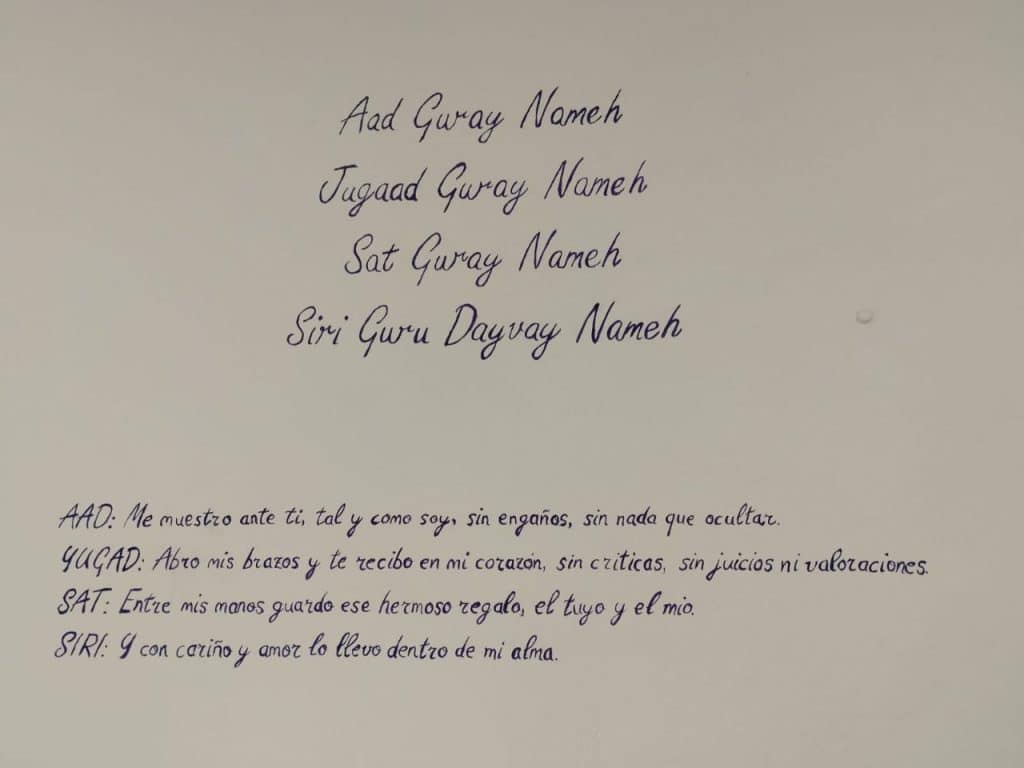 Aad Guray Nameh
Jugaad Guray Nameh
Sat Guray Nameh
Siri Guru Dayvay Nameh
AAD: Me muestro ante ti, tal y como soy, sin engaños, sin nada que ocultar.
YUGAD: Abro mis brazos y te recibo en mi corazón, sin criticas, sin juicios ni valoraciones.
SAT: Entre mis manos guardo ese hermoso regalo, el tuyo y el mio.
SIRI: Y con cariño y amor lo llevo dentro de mi alma.